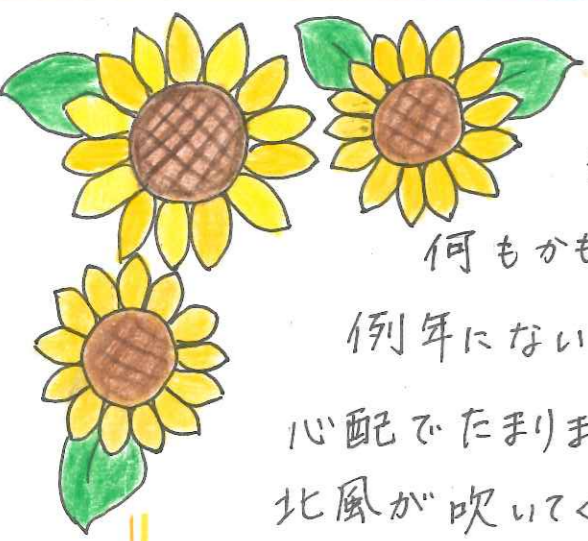 何もかも
例年にない
心配でたまりま
北風が吹いてく